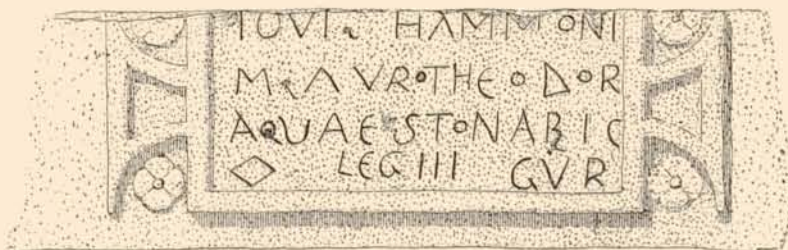 IOVI HAMMONI
M AVR THEODOR
AQUAESTONARIC
LEGIII GVR